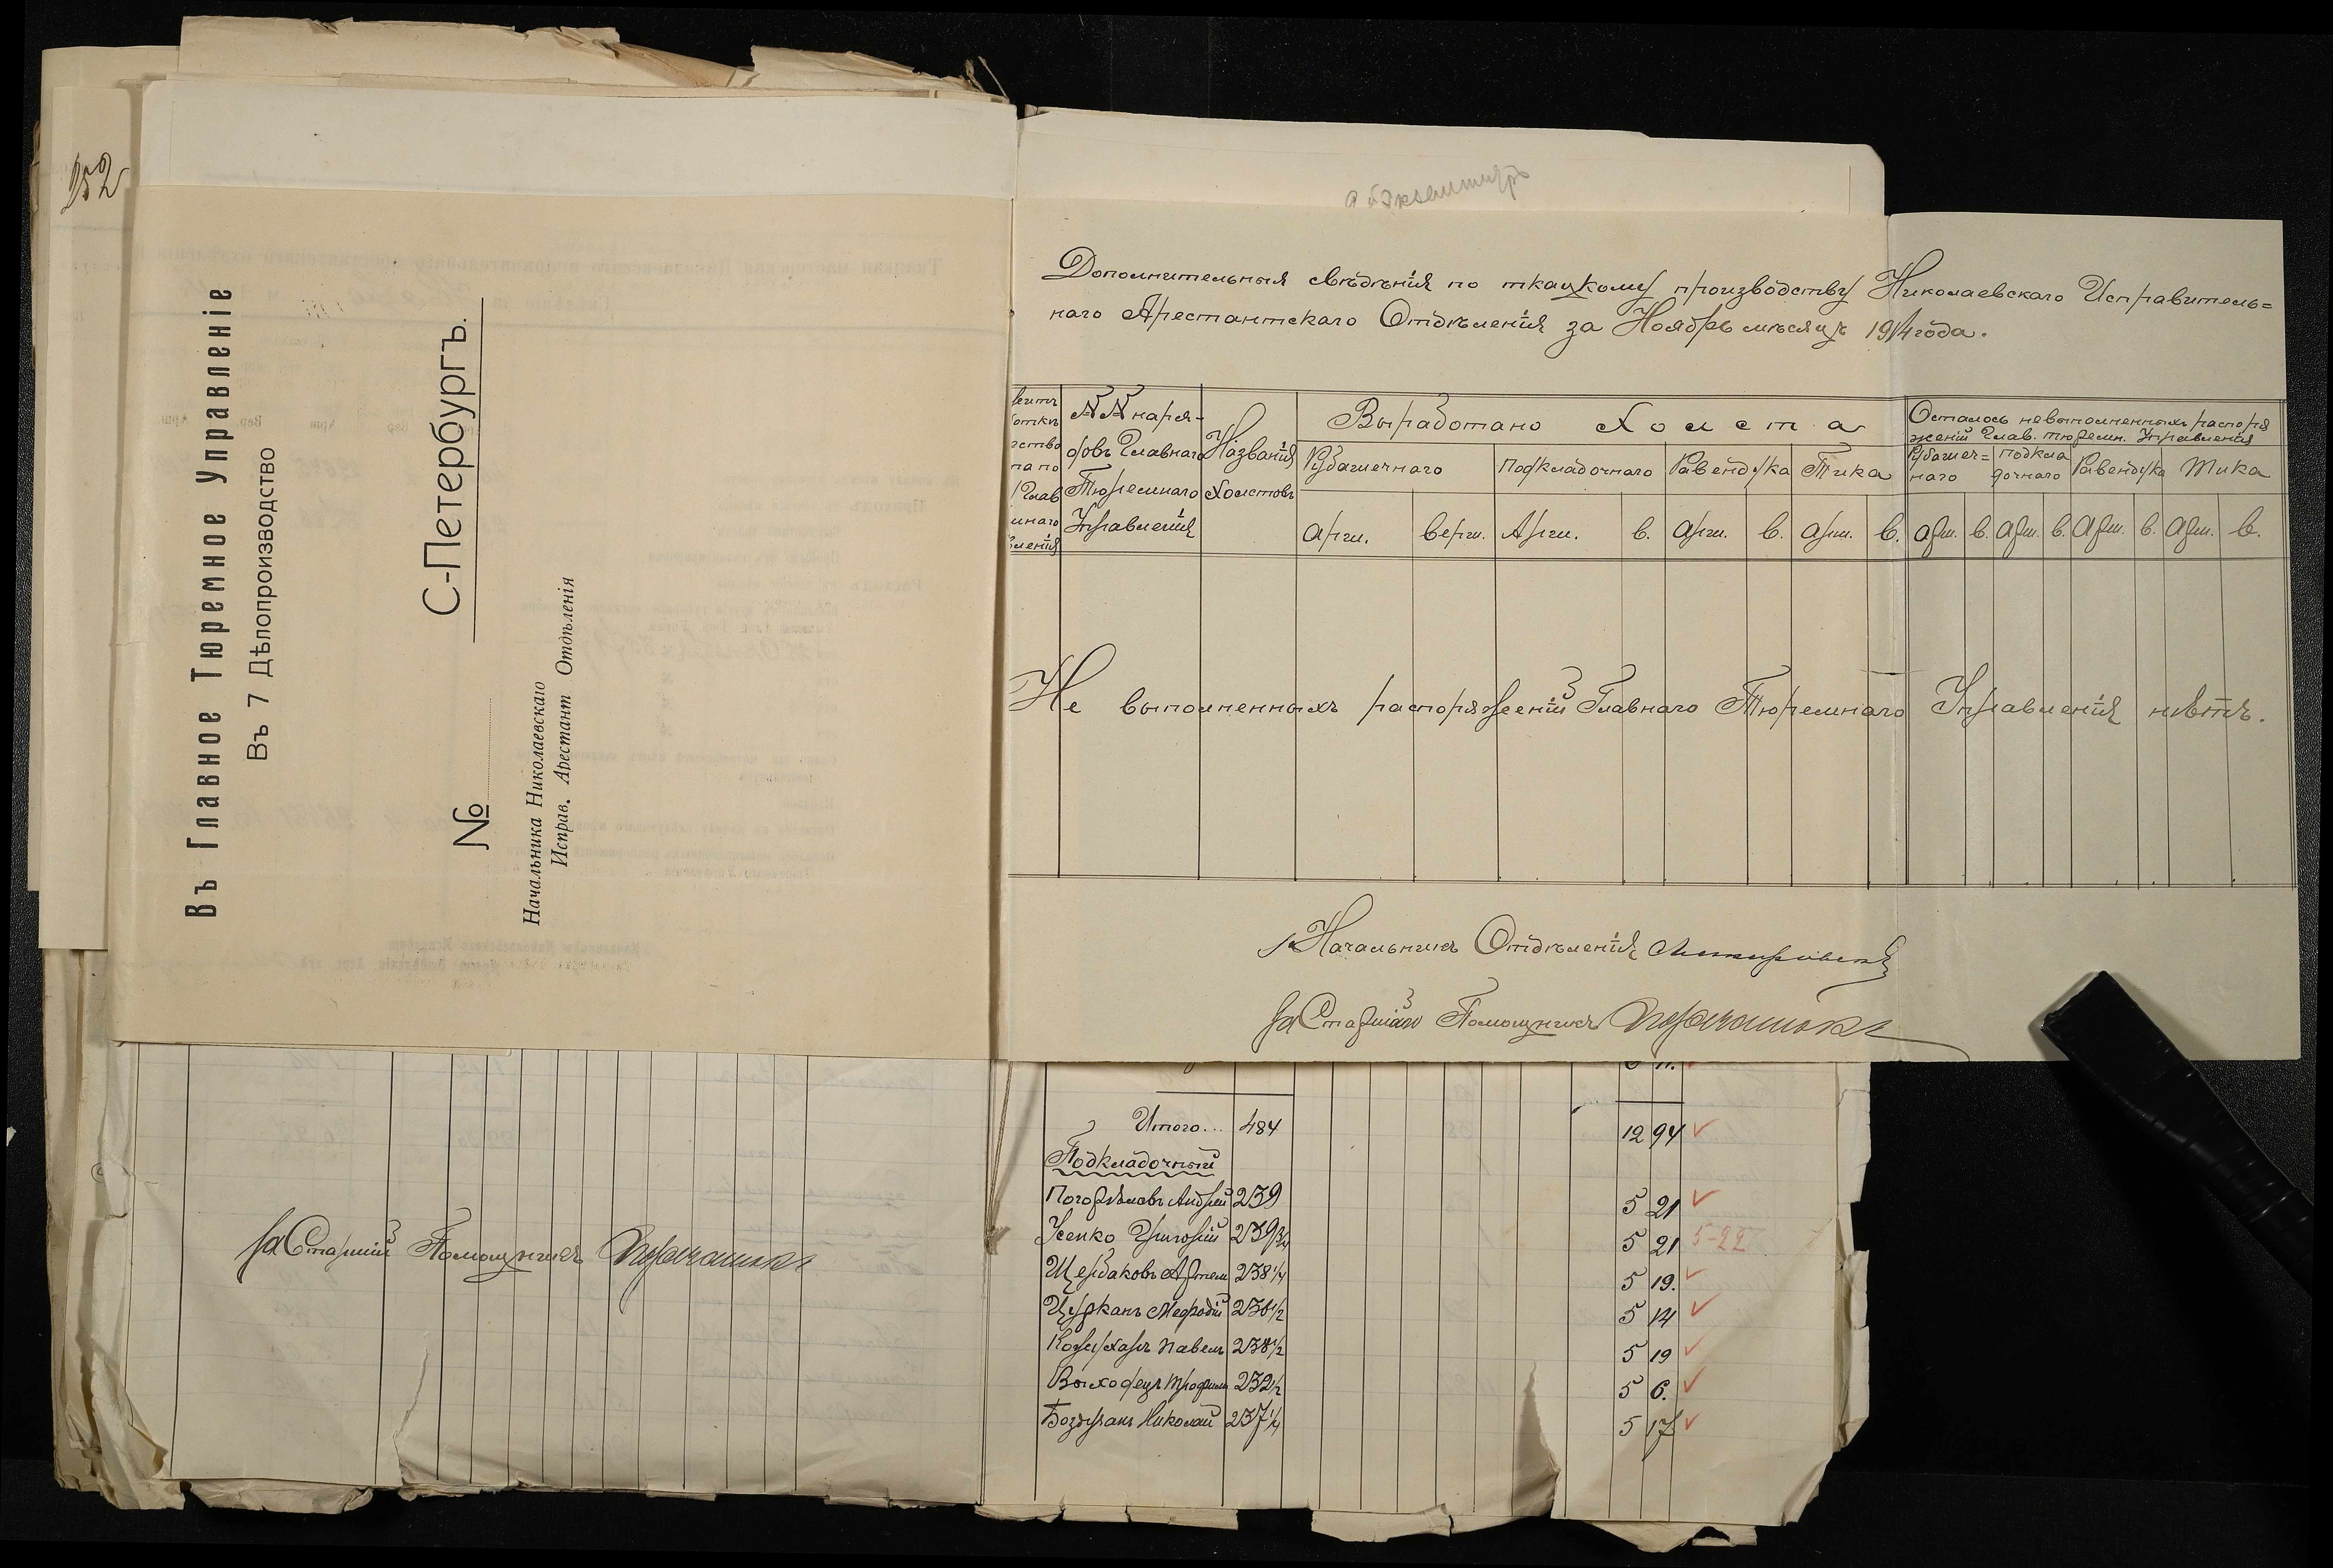 252
Въ Главное Тюремное Управленіе
Въ 7 Дѣлопроизводство
С-Петербургъ.
№
Начальника Николаевскаго
Исправ. Арестант Отдѣленія
Дополнительныя свѣдѣнія по ткацкому производству Николаевскаго Исправитель=
наго Арестантскаго Отдѣленія за Ноябрь мѣсяцъ 1914 года.
№№ наря-
довъ Главнаго
Тюремнаго
Управленія
Названія
Холстовъ
Выработано Холста
Рубашечнаго Подкладочнаго Равендука Тика
Арш. Верш. Арш. В. Арш. В. Арш. В.
Осталось невыполненныхъ распоря
женій Глав. тюремн. Управленія
Рубашеч= наго Подкла дочнаго Равендука Тика
Арш. В. Арш. В. Арш. В. Арш. В.
Не выполненныхъ распоряженій Главнаго Тюремнаго Управленія нѣтъ.
Начальникъ Отдѣленія
За Старшаго Помощникъ
За Старшій Помощникъ
Итого... 484 12 94
Подкладочный
Погорѣловъ Андрей 239 5 21
Усенко Григорій 239 3/4 5 21 5-22
Щербаковъ Артем 238 1/4 5 19.
Цурканъ Мефодій 236 1/2 5 14
Павелъ 238 1/2 5 19
Выходецъ Трофим 232 1/2 5 6.
Николай 237 1/4 5 17